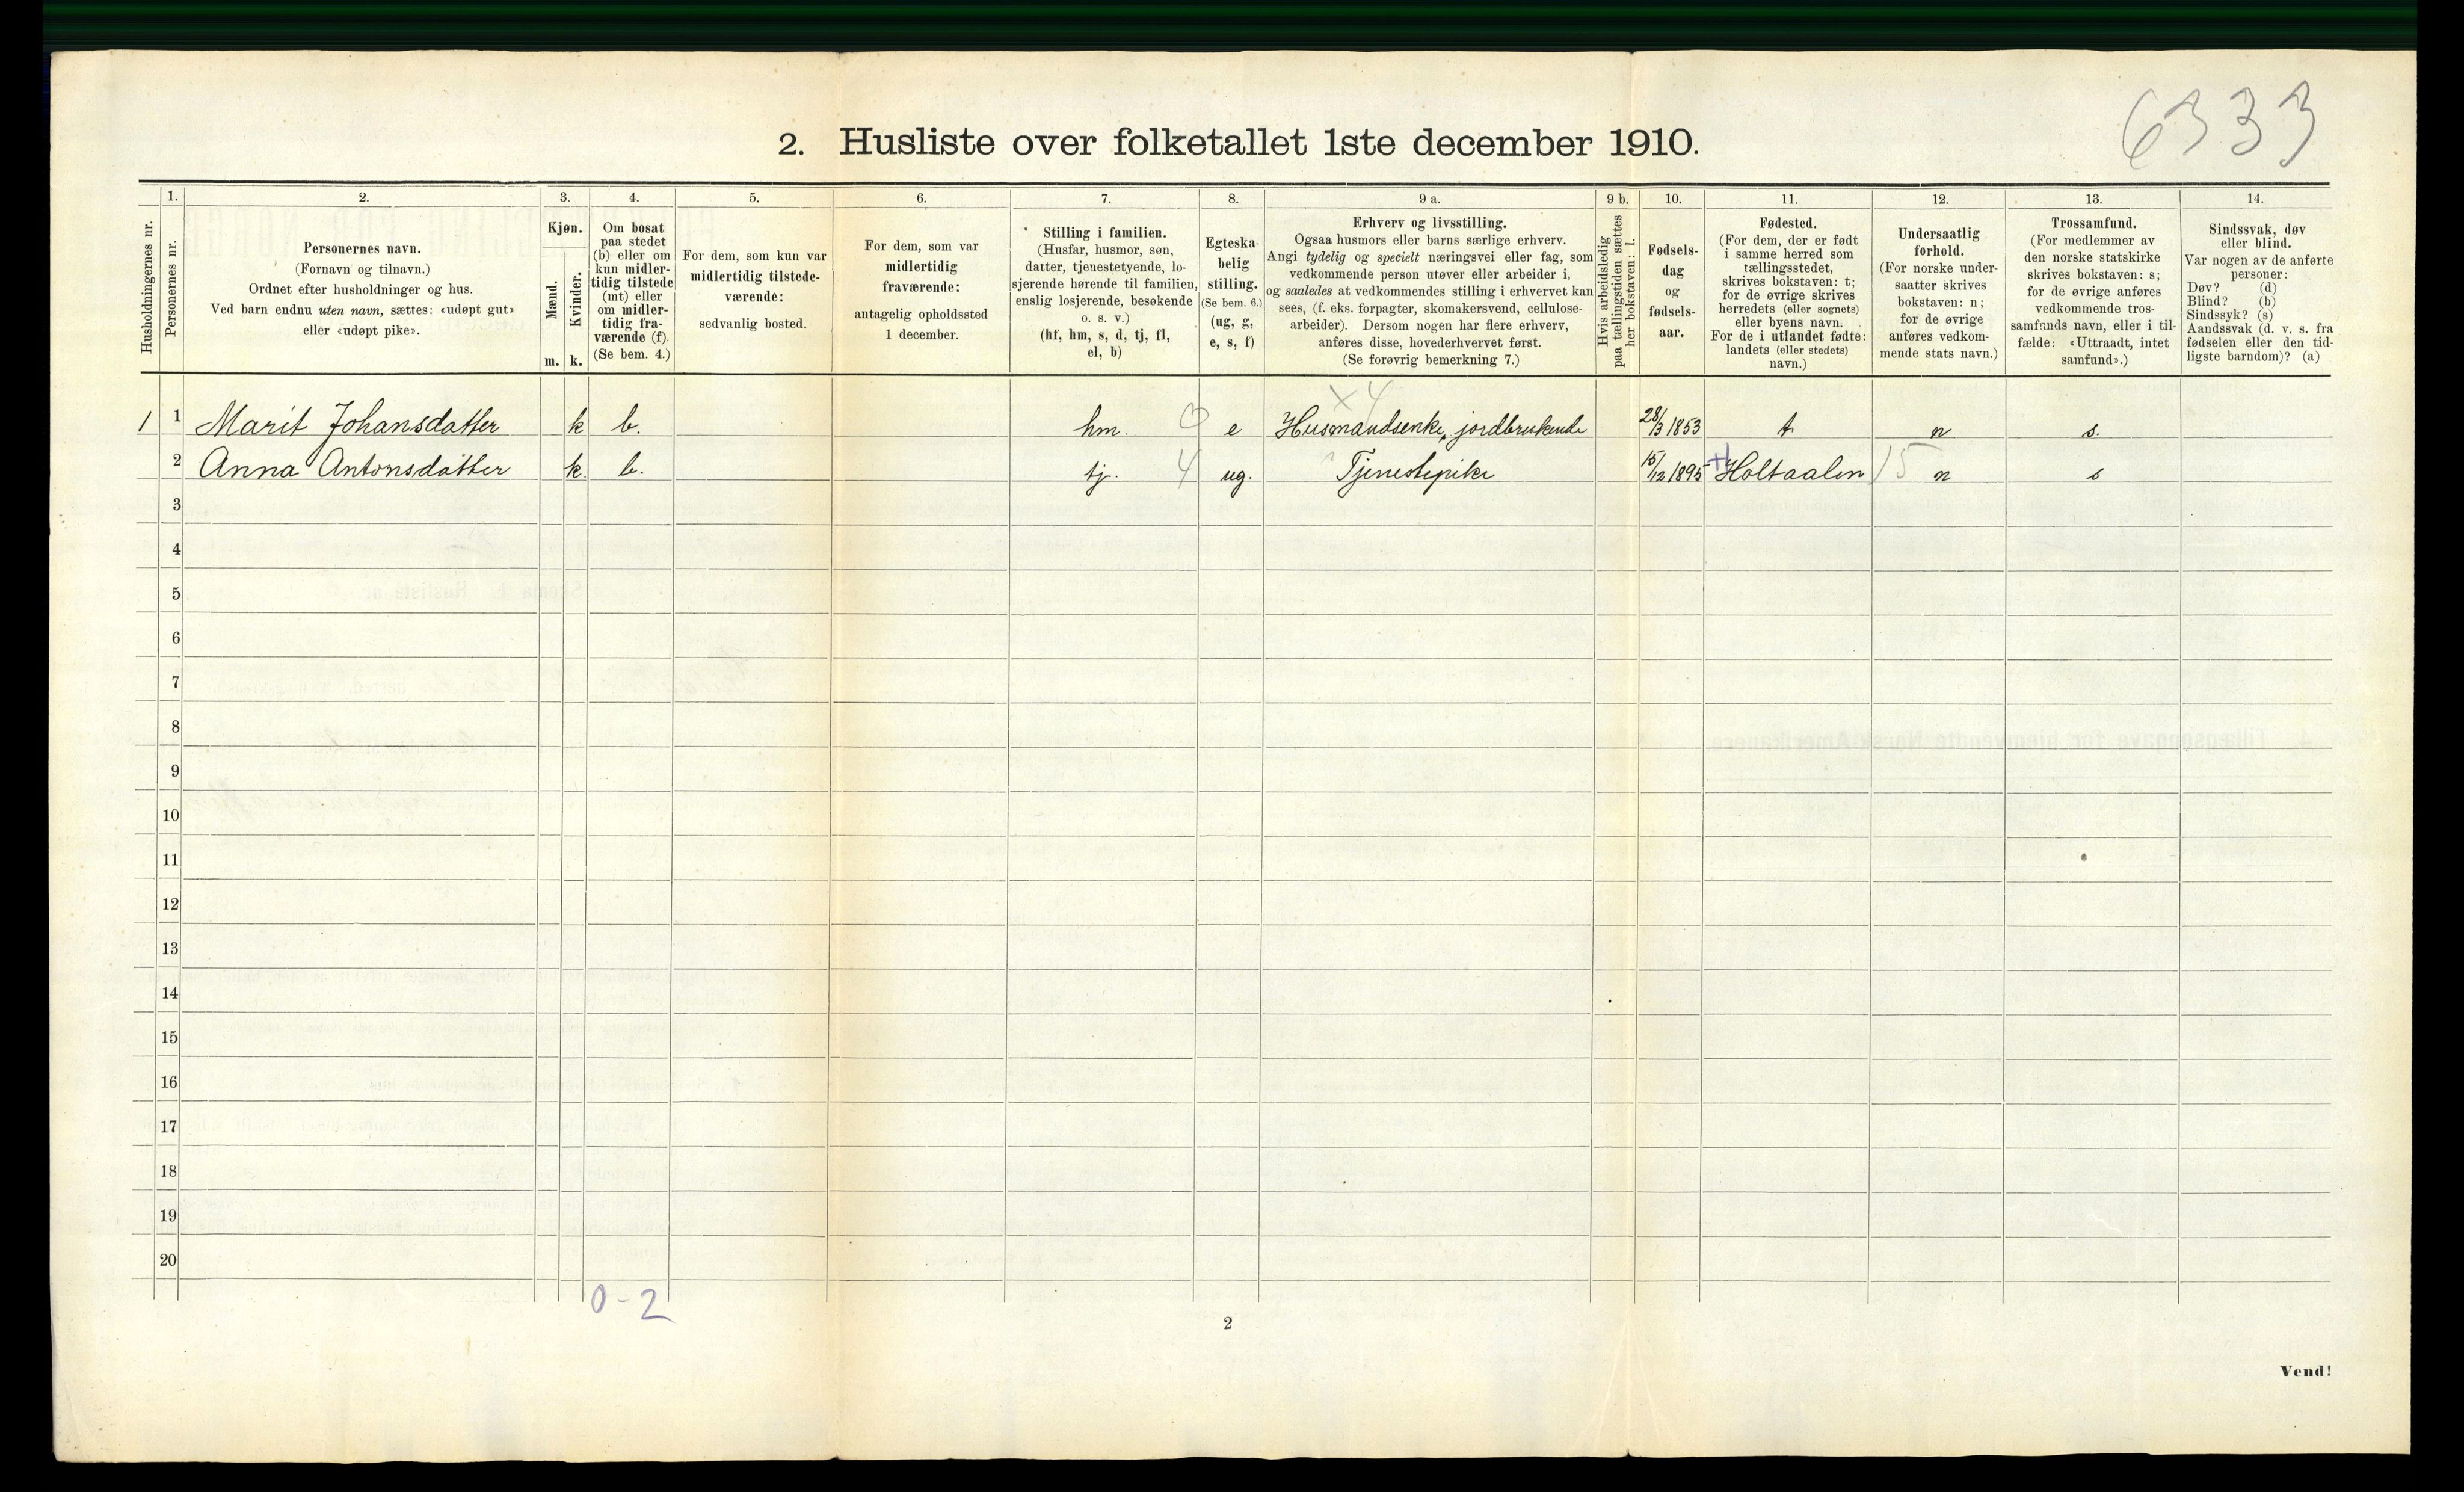 6333
2. Husliste over folketallet 1ste december 1910.
Husholdningernes nr.
1.
Personernes nr.
2.
Personernes navn.
(Fornavn og tilnavn.)
Ordnet efter husholdninger og hus.
Ved barn endnu uten navn, sættes: «udøpt gut»
eller «udøpt pike».
3.
Kjøn.
Mænd.
m.
Kvinder.
k.
4.
Om bosat
paa stedet
(b) eller om
kun midler-
tidig tilstede
(mt) eller
om midler-
tidig fra-
værende (f).
(Se bem. 4.)
5.
For dem, som kun var
midlertidig tilstede-
værende:
sedvanlig bosted.
6.
For dem, som var
midlertidig
fraværende:
antagelig opholdssted
1 december.
7.
Stilling i familien.
(Husfar, husmor, søn,
datter, tjenestetyende, lo-
sjerende hørende til familien,
enslig losjerende, besøkende
o. s. v.)
(hf, hm, s, d, tj, fl,
el, b)
8.
Egteska-
belig
stilling.
(Se bem. 6.)
(ug, g,
e, s, f)
9 a.
Erhverv og livsstilling.
Ogsaa husmors eller barns særlige erhverv.
Angi tydelig og specielt næringsvei eller fag, som
vedkommende person utøver eller arbeider i,
og saaledes at vedkommendes stilling i erhvervet kan
sees, (f. eks. forpagter, skomakersvend, cellulose-
arbeider). Dersom nogen har flere erhverv,
anføres disse, hovederhvervet først.
(Se forøvrig bemerkning 7.)
9 b.
Hvis arbeidsledig
paa tællingstiden sættes
her bokstaven: l.
10.
Fødsels-
dag
og
fødsels-
aar.
11.
Fødested.
(For dem, der er født
i samme herred som
tællingsstedet,
skrives bokstaven: t;
for de øvrige skrives
herredets (eller sognets)
eller byens navn.
For de i utlandet fødte:
landets (eller stedets)
navn.)
12.
Undersaatlig
forhold.
(For norske under-
saatter skrives
bokstaven: n;
for de øvrige
anføres vedkom-
mende stats navn.)
13.
Trossamfund.
(For medlemmer av
den norske statskirke
skrives bokstaven: s;
for de øvrige anføres
vedkommende tros-
samfunds navn, eller i til-
fælde: «Uttraadt, intet
samfund».)
14.
Sindssvak, døv
eller blind.
Var nogen av de anførte
personer:
Døv? (d)
Blind? (b)
Sindssyk? (s)
Aandssvak (d. v. s. fra
fødselen eller den tid-
ligste barndom)? (a)
x 4
1 1 Marit Johansdatter k b. hm. 0 e Husmandsenke, jordbrukende 28/3 1853 t n s.
2 Anna Antonsdatter k. b. tj. 4 ug. Tjenestepike 15/12 1895 Holtaalen 15 n s
3
4
5
6
7
8
9
10
11
12
13
14
15
16
17
18
19
20
0-2
2
Vend!